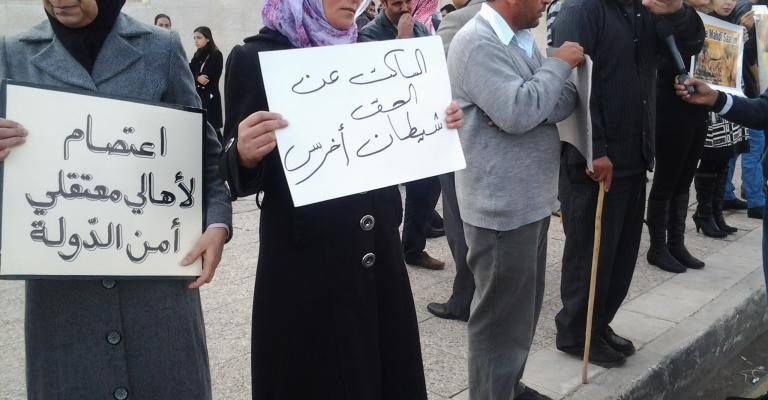 اعتصام
لأهالي معتقلي
أمن الدّولة
الساكت عن
الحق
شيطان أخرس
Mahdi Saa